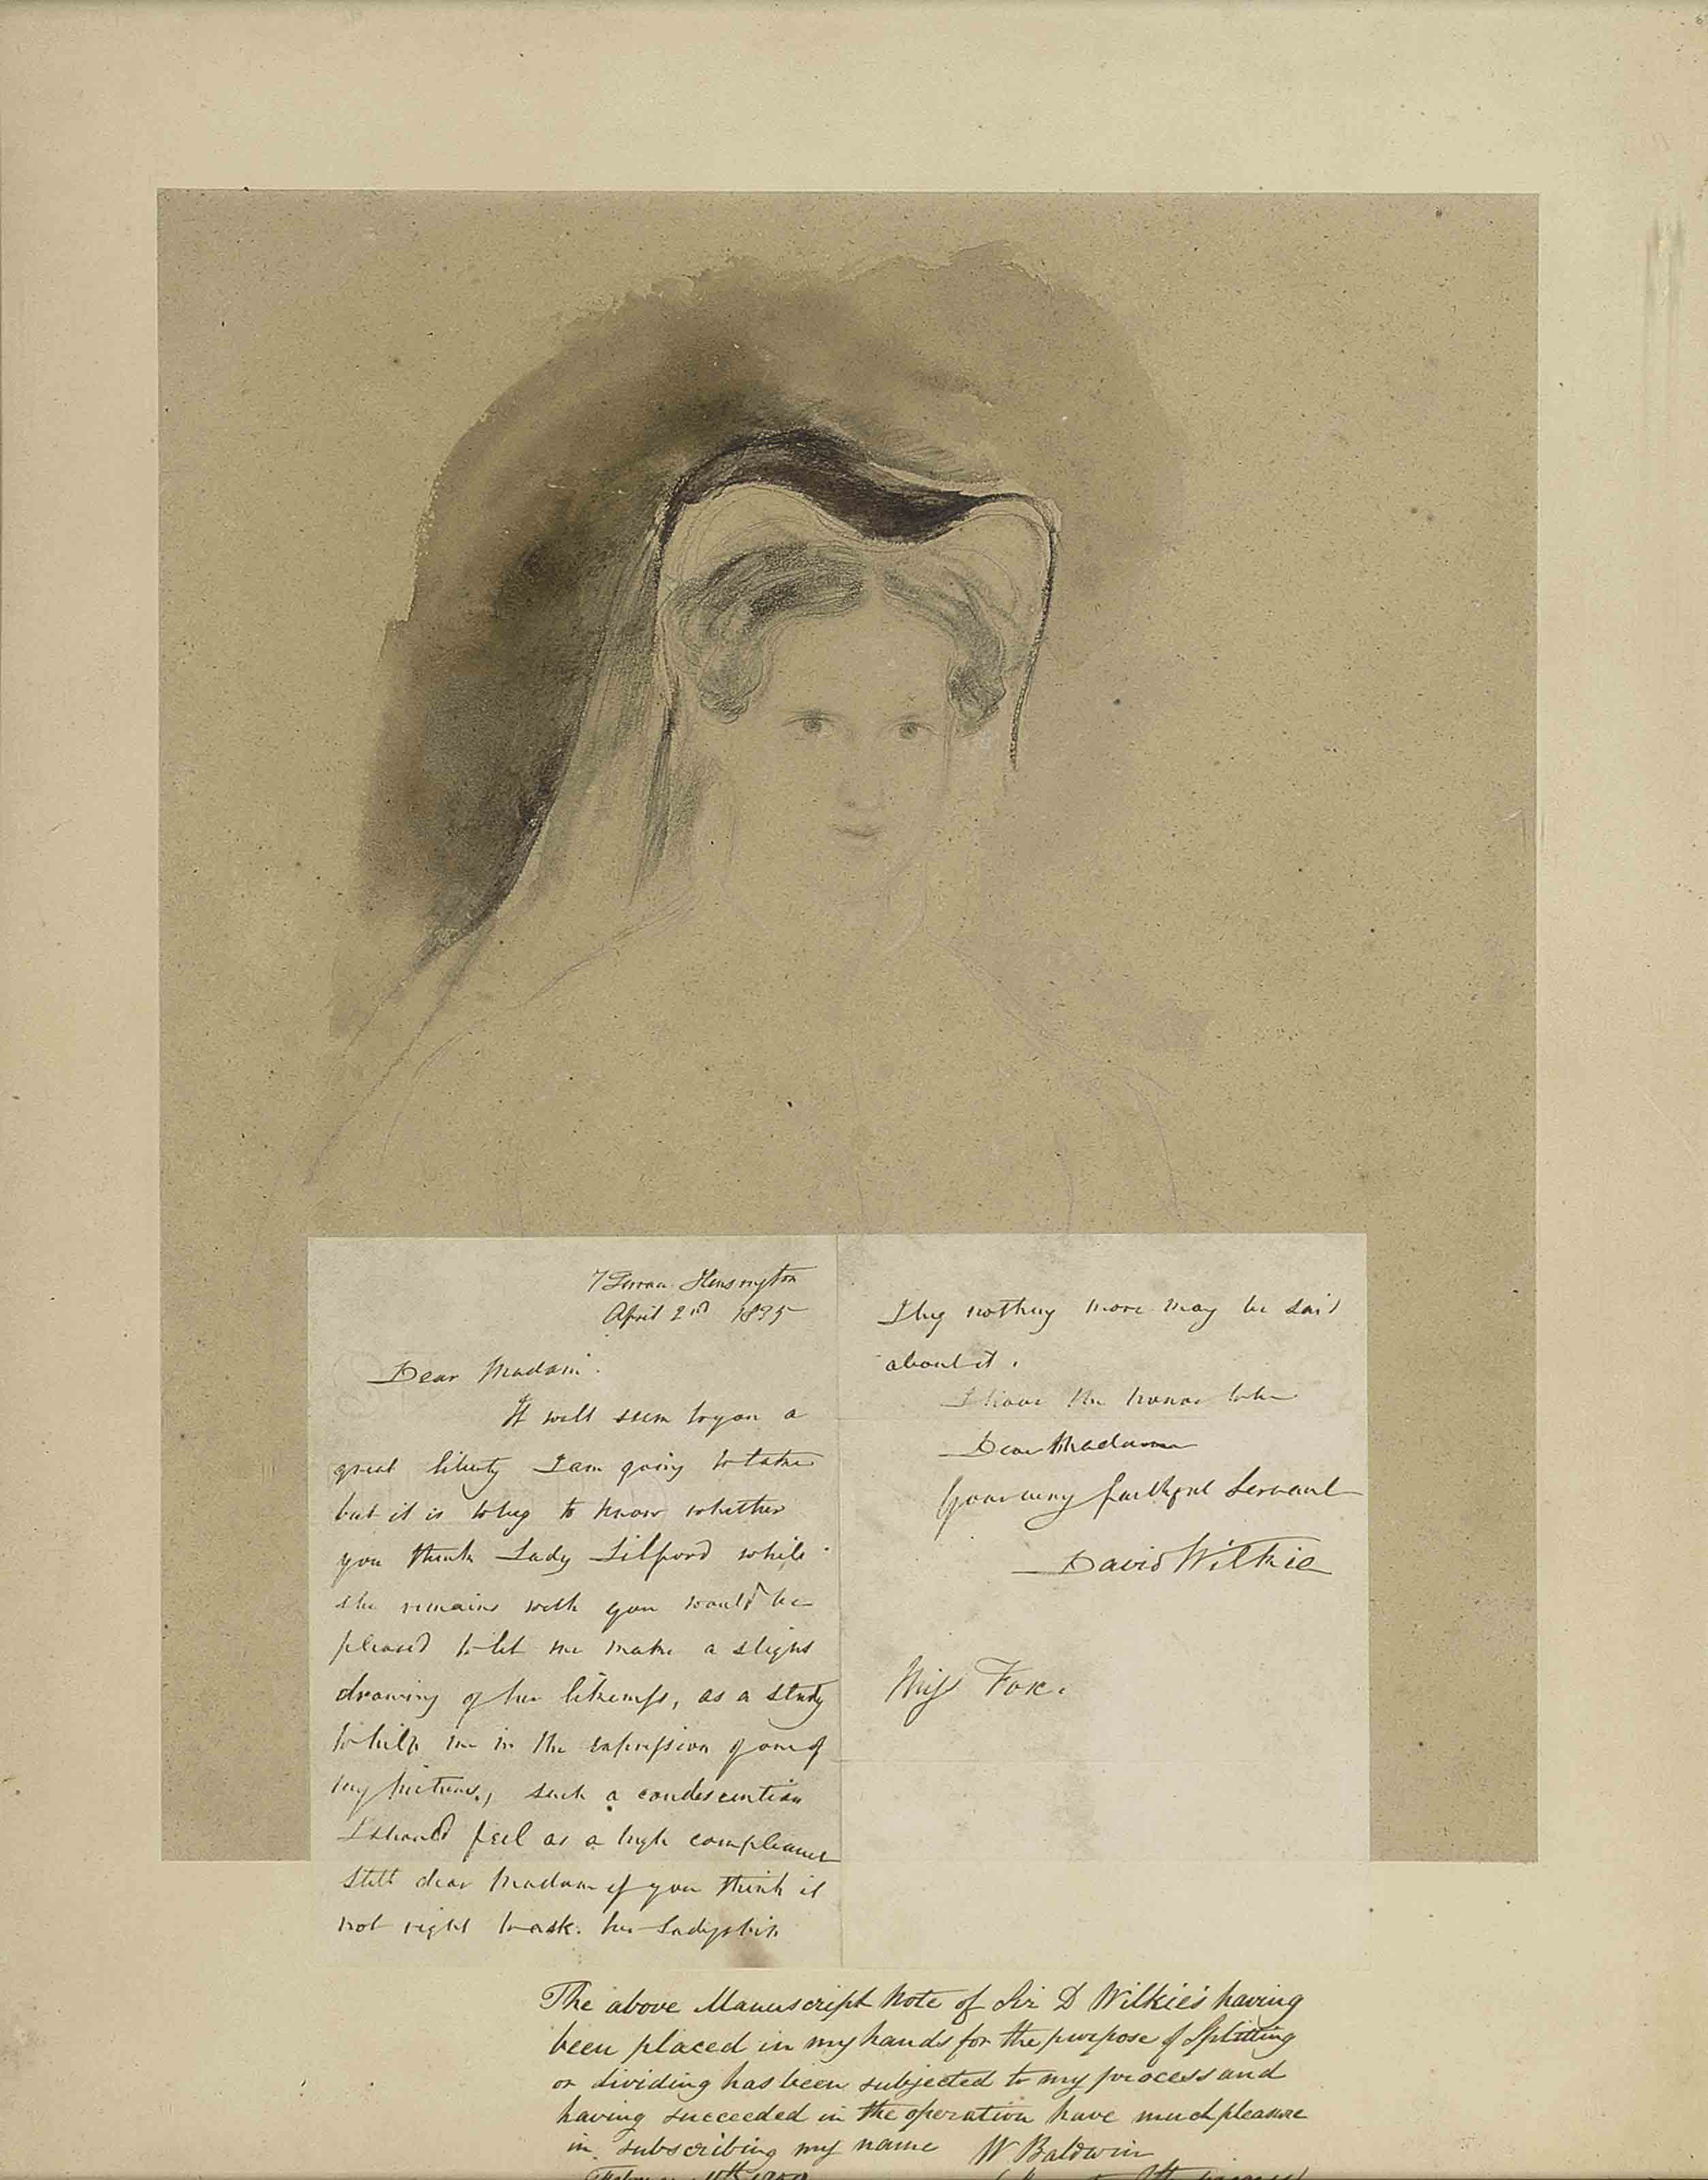 7 Terrace Kensington
April 2nd 1835
Dear Madam.
It will seem to you a
great liberty I am going to take
but it is to beg to know whether
you think Lady Lilford while
she remains with you would be
pleased to let me make a slight
drawing of her likeness, as a study
to help me in the expression of one of
my pictures, such a condescention
I should feel as a high compliment
Still dear Madam if you think it
not right to ask her Ladyship
I beg nothing more may be said
about it.
I have the honor to be
Dear Madam
Your very faithful Servant
David Wilkie
Miss Fox.
The above Manuscript Note of Sir D Wilkie's having
been placed in my hands for the purpose of Splitting
or dividing has been subjected to my process and
having succeeded in the operation have much pleasure
in subscribing my name W Baldwin